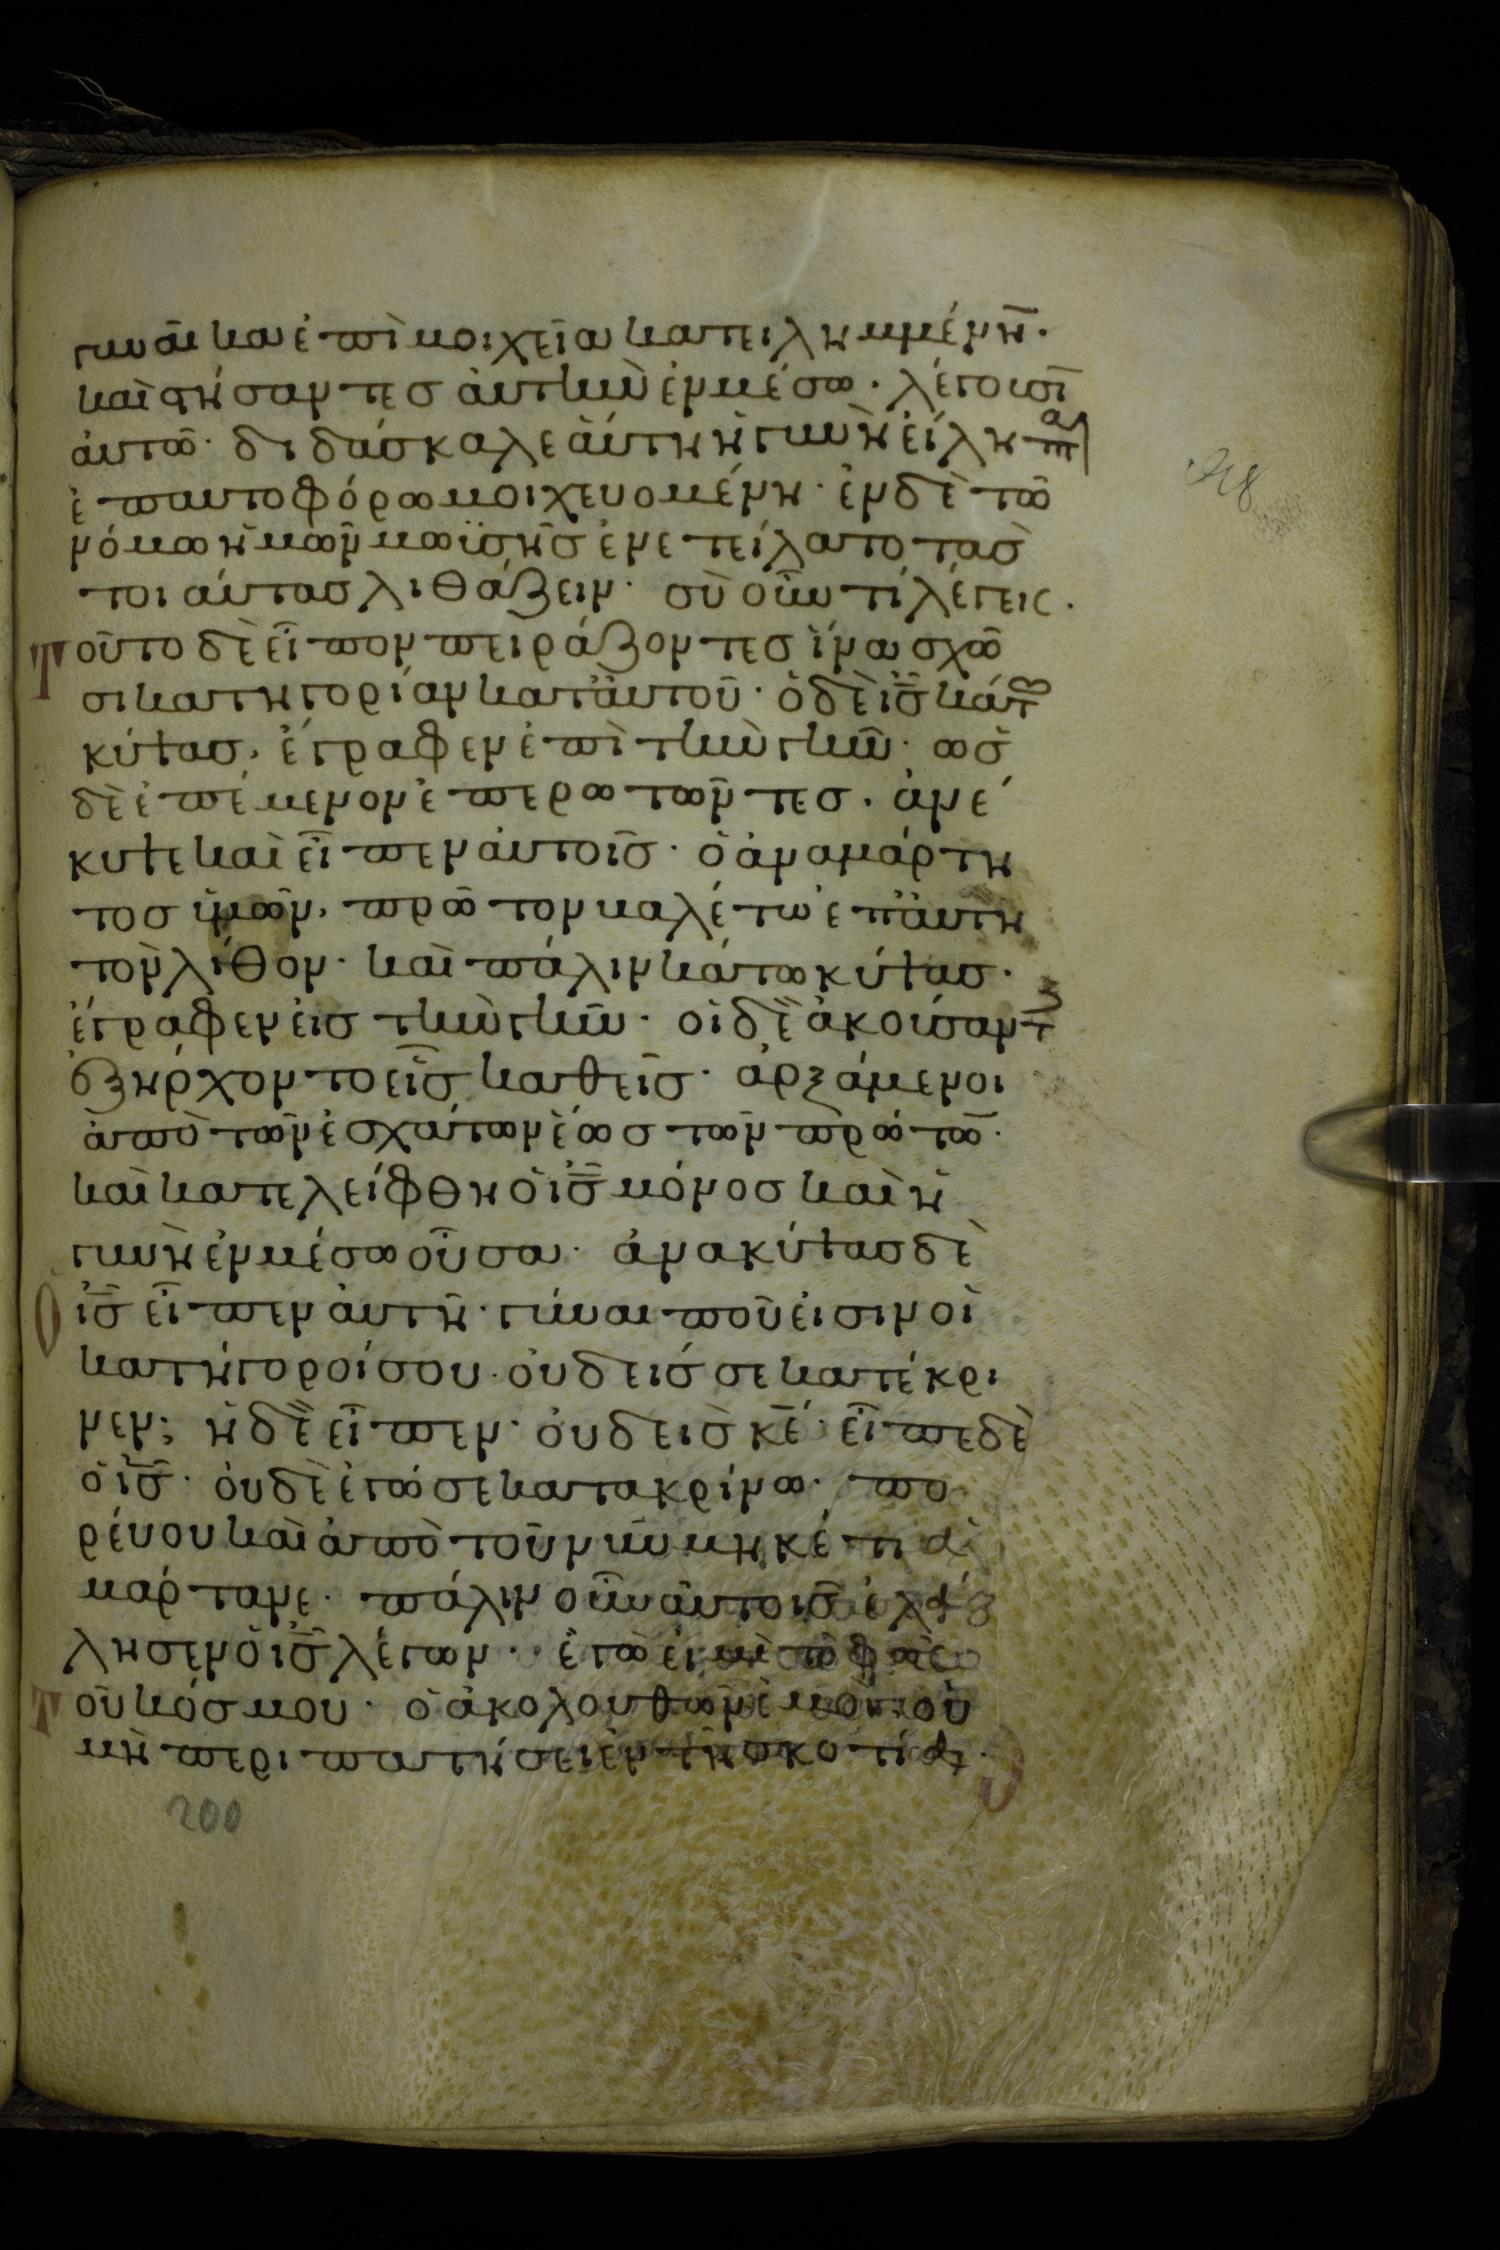 γυναῖκα ἐπὶ μοιχεῖα κατειλημμένη̅·
καὶ στήσαντες ἀυτὴν ἐν μέσω· λέγουσῑ
ἀυτῶ· διδάσκαλε ἄυτη ἡ γυνὴ εἴληπ^ται
ἐπαυτοφόρω μοιχευομένη· ἐν δὲ τῶ
νόμω ἡμῶν μωϋσῆς ἐνετείλατο τὰς
τοιάυτας λιθάζειν· σὺ οὖν τί λέγεις.
Τοῦτο δὲ εἶπον πειράζοντες ἵνα σχῶ
σι κατηγορίαν κατ' ἀυτοῦ· ὁ δὲ ἰς̅ κάτω
κύψας, ἔγραφεν ἐπὶ τὴν γῆν· ὡς
δὲ ἐπέμενον ἐπερωτῶντες. ἀνέ
κυψε καὶ εἶπεν ἀυτοῖς· ὁ ἀναμάρτη
τος ὑμῶν, πρῶτον βαλέτω ἐπ' ἀυτὴ
τὸν λίθον· καὶ πάλιν κάτω κύψας·
ἔγραφεν εἰς τὴν γῆν· οἱ δὲ ἀκούσαντ
ἐξήρχοντο εἷς καθεῖς· ἀρξάμενοι
ἀπὸ τῶν ἐσχάτων ἕως τῶν πρώτω̅·
καὶ κατελείφθη ὁ ἰς̅ μόνος καὶ ἡ
γυνὴ ἐν μέσω οὖσα· ἀνακύψας δὲ
Ὁ ἰς̅ εἶπεν ἀυτῆ· γύναι ποῦ ἐισιν οἱ
κατήγοροί σου· ὀυδείς σε κατέκρι
νεν; ἡ δὲ εἶπεν· ὀυδεὶς κε̅· εἶπε δὲ
ὁ ἰς̅· ὀυδὲ ἐγώ σε κατακρίνω· πο
ρέυου καὶ ἀπὸ τοῦ νῦν μηκέτι ἁ
μάρτανε· πάλιν οὖν ἀυτοῖς ἐλά
λησεν ὁ ἰς̅ λέγων·· ἐγώ ἐιμι τὸ φῶς
Τοῦ κόσμου· ὁ ἀκολουθῶν ἐμοὶ οὐ
μὴ περιπατήσει ἐν τῆ σκοτία·
200